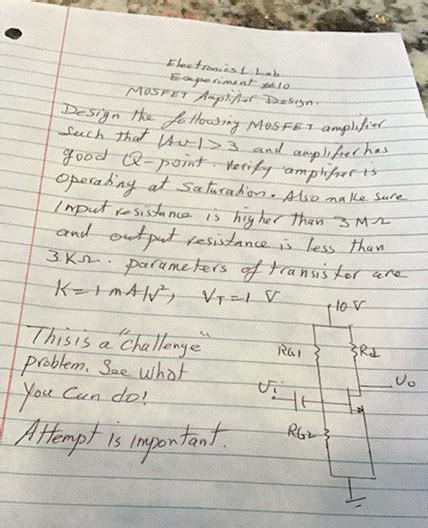 Electronics 1 Lab
Experiment #10
MOSFET Amplifier Design.
Design the following MOSFET amplifier
such that |Av|>3 and amplifier has
good Q-point. Verify amplifier is
operating at Saturation. Also make sure
Input resistance is higher than 3MΩ
and output resistance is less than
3KΩ. parameters of transistor are
K=1mA/V², VT=1 V
10 V
This is a "challenge"
problem. See what
You Can do!
Attempt is important.
RG1
Rd
Vi
Vo
RG2